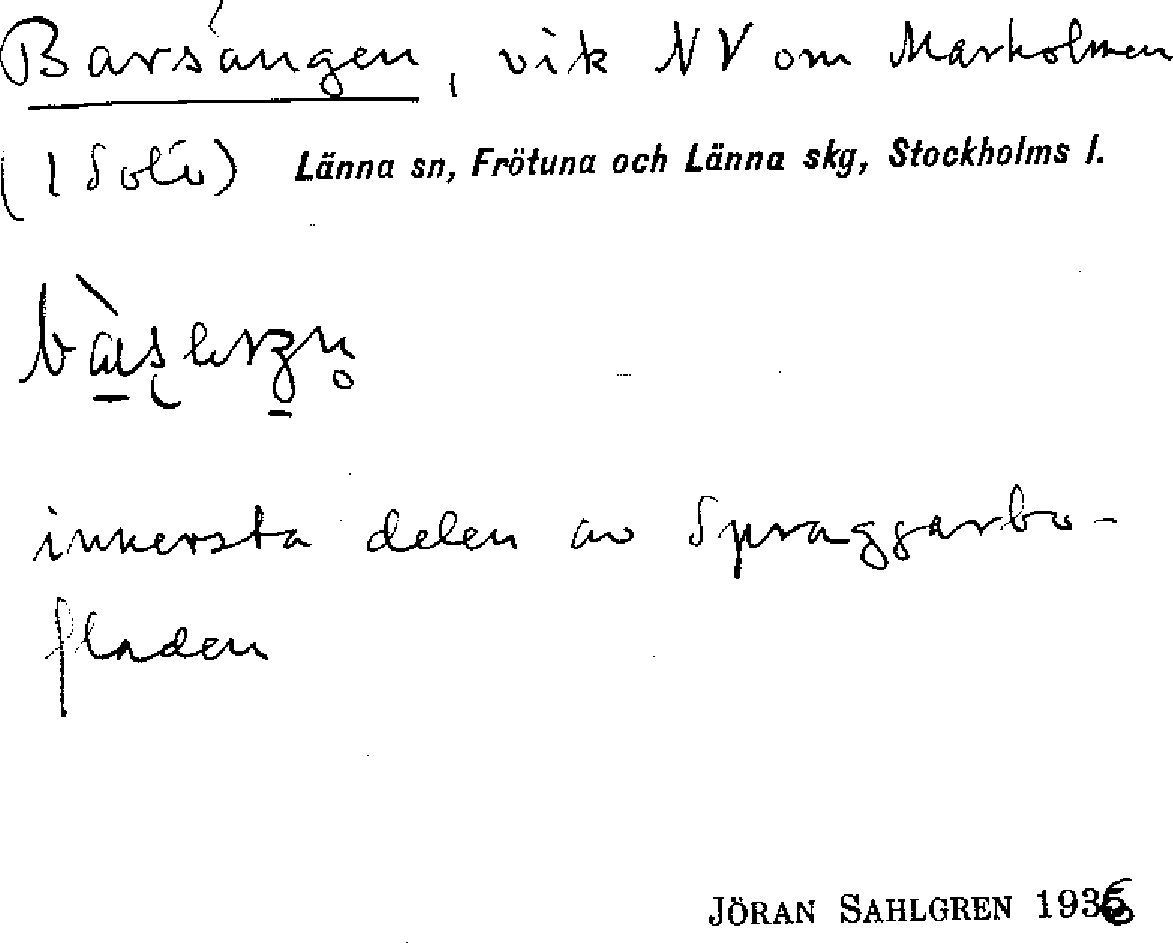 Barsängen, vik NV om Marholmen
Länna sn, Frötuna och Länna skg, Stockholms l.
innersta delen av Spraggarbo-
fladen
JÖRAN SAHLGREN 1936